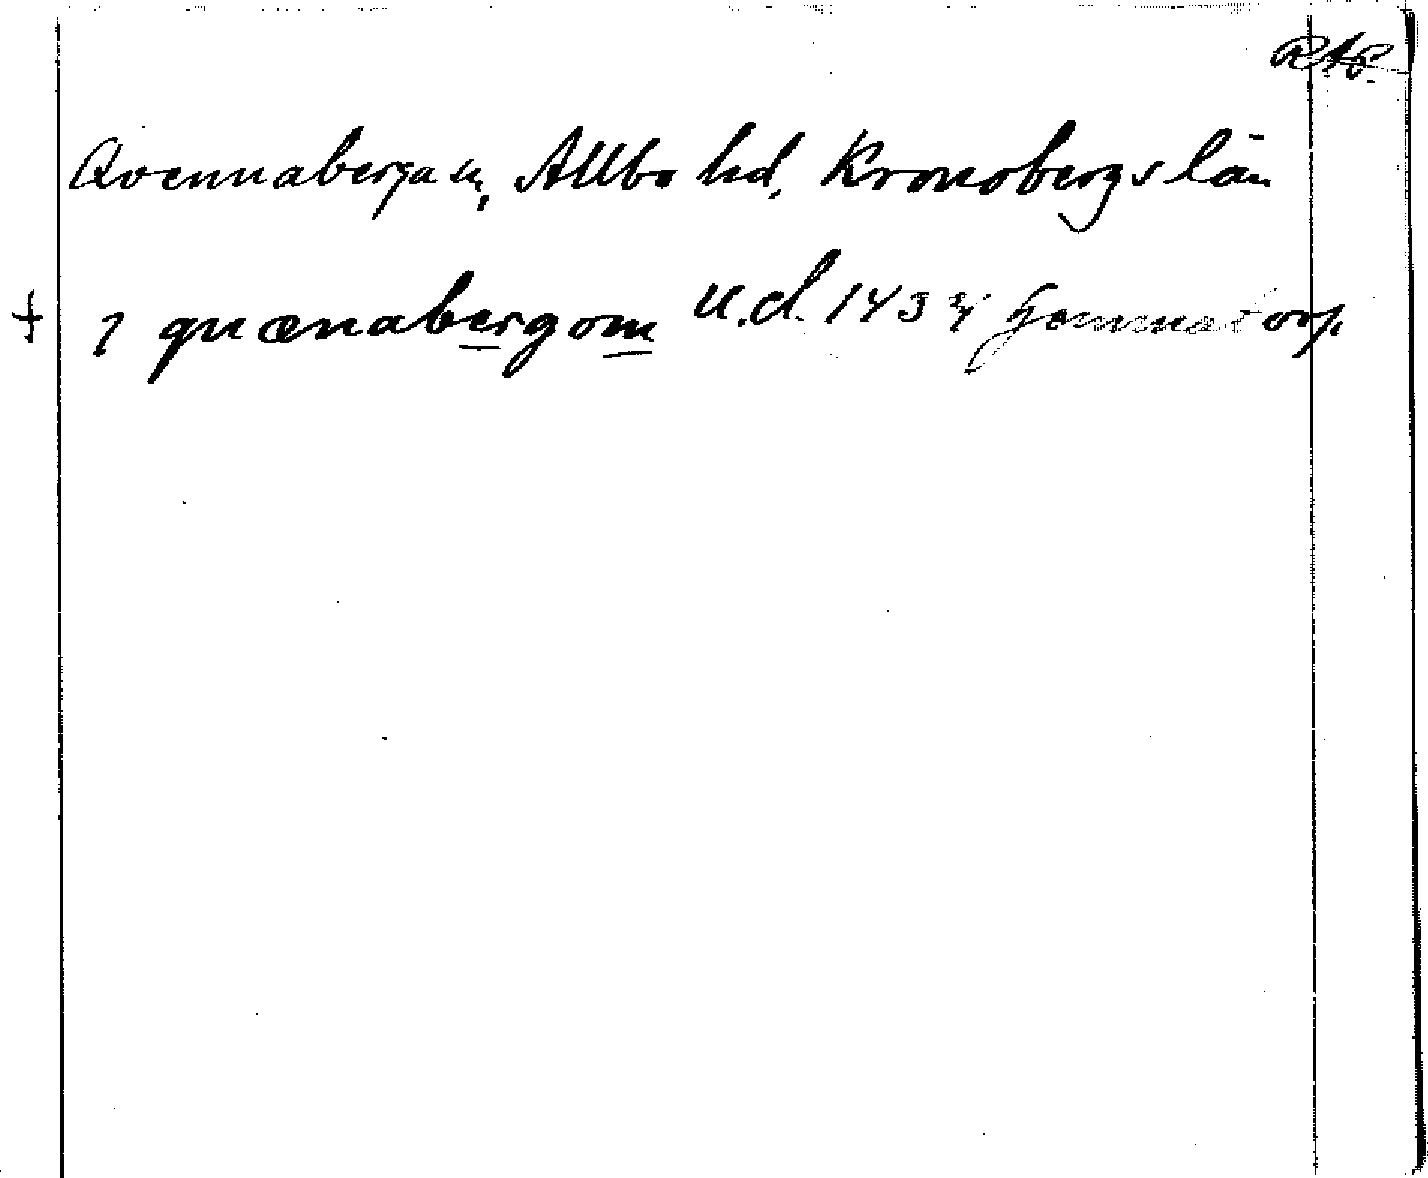 RAP.
Qvennaberga sn, Allbo hd, Kronobergs län
‡ J quænabergom u.d. 1434 Hemmestorp